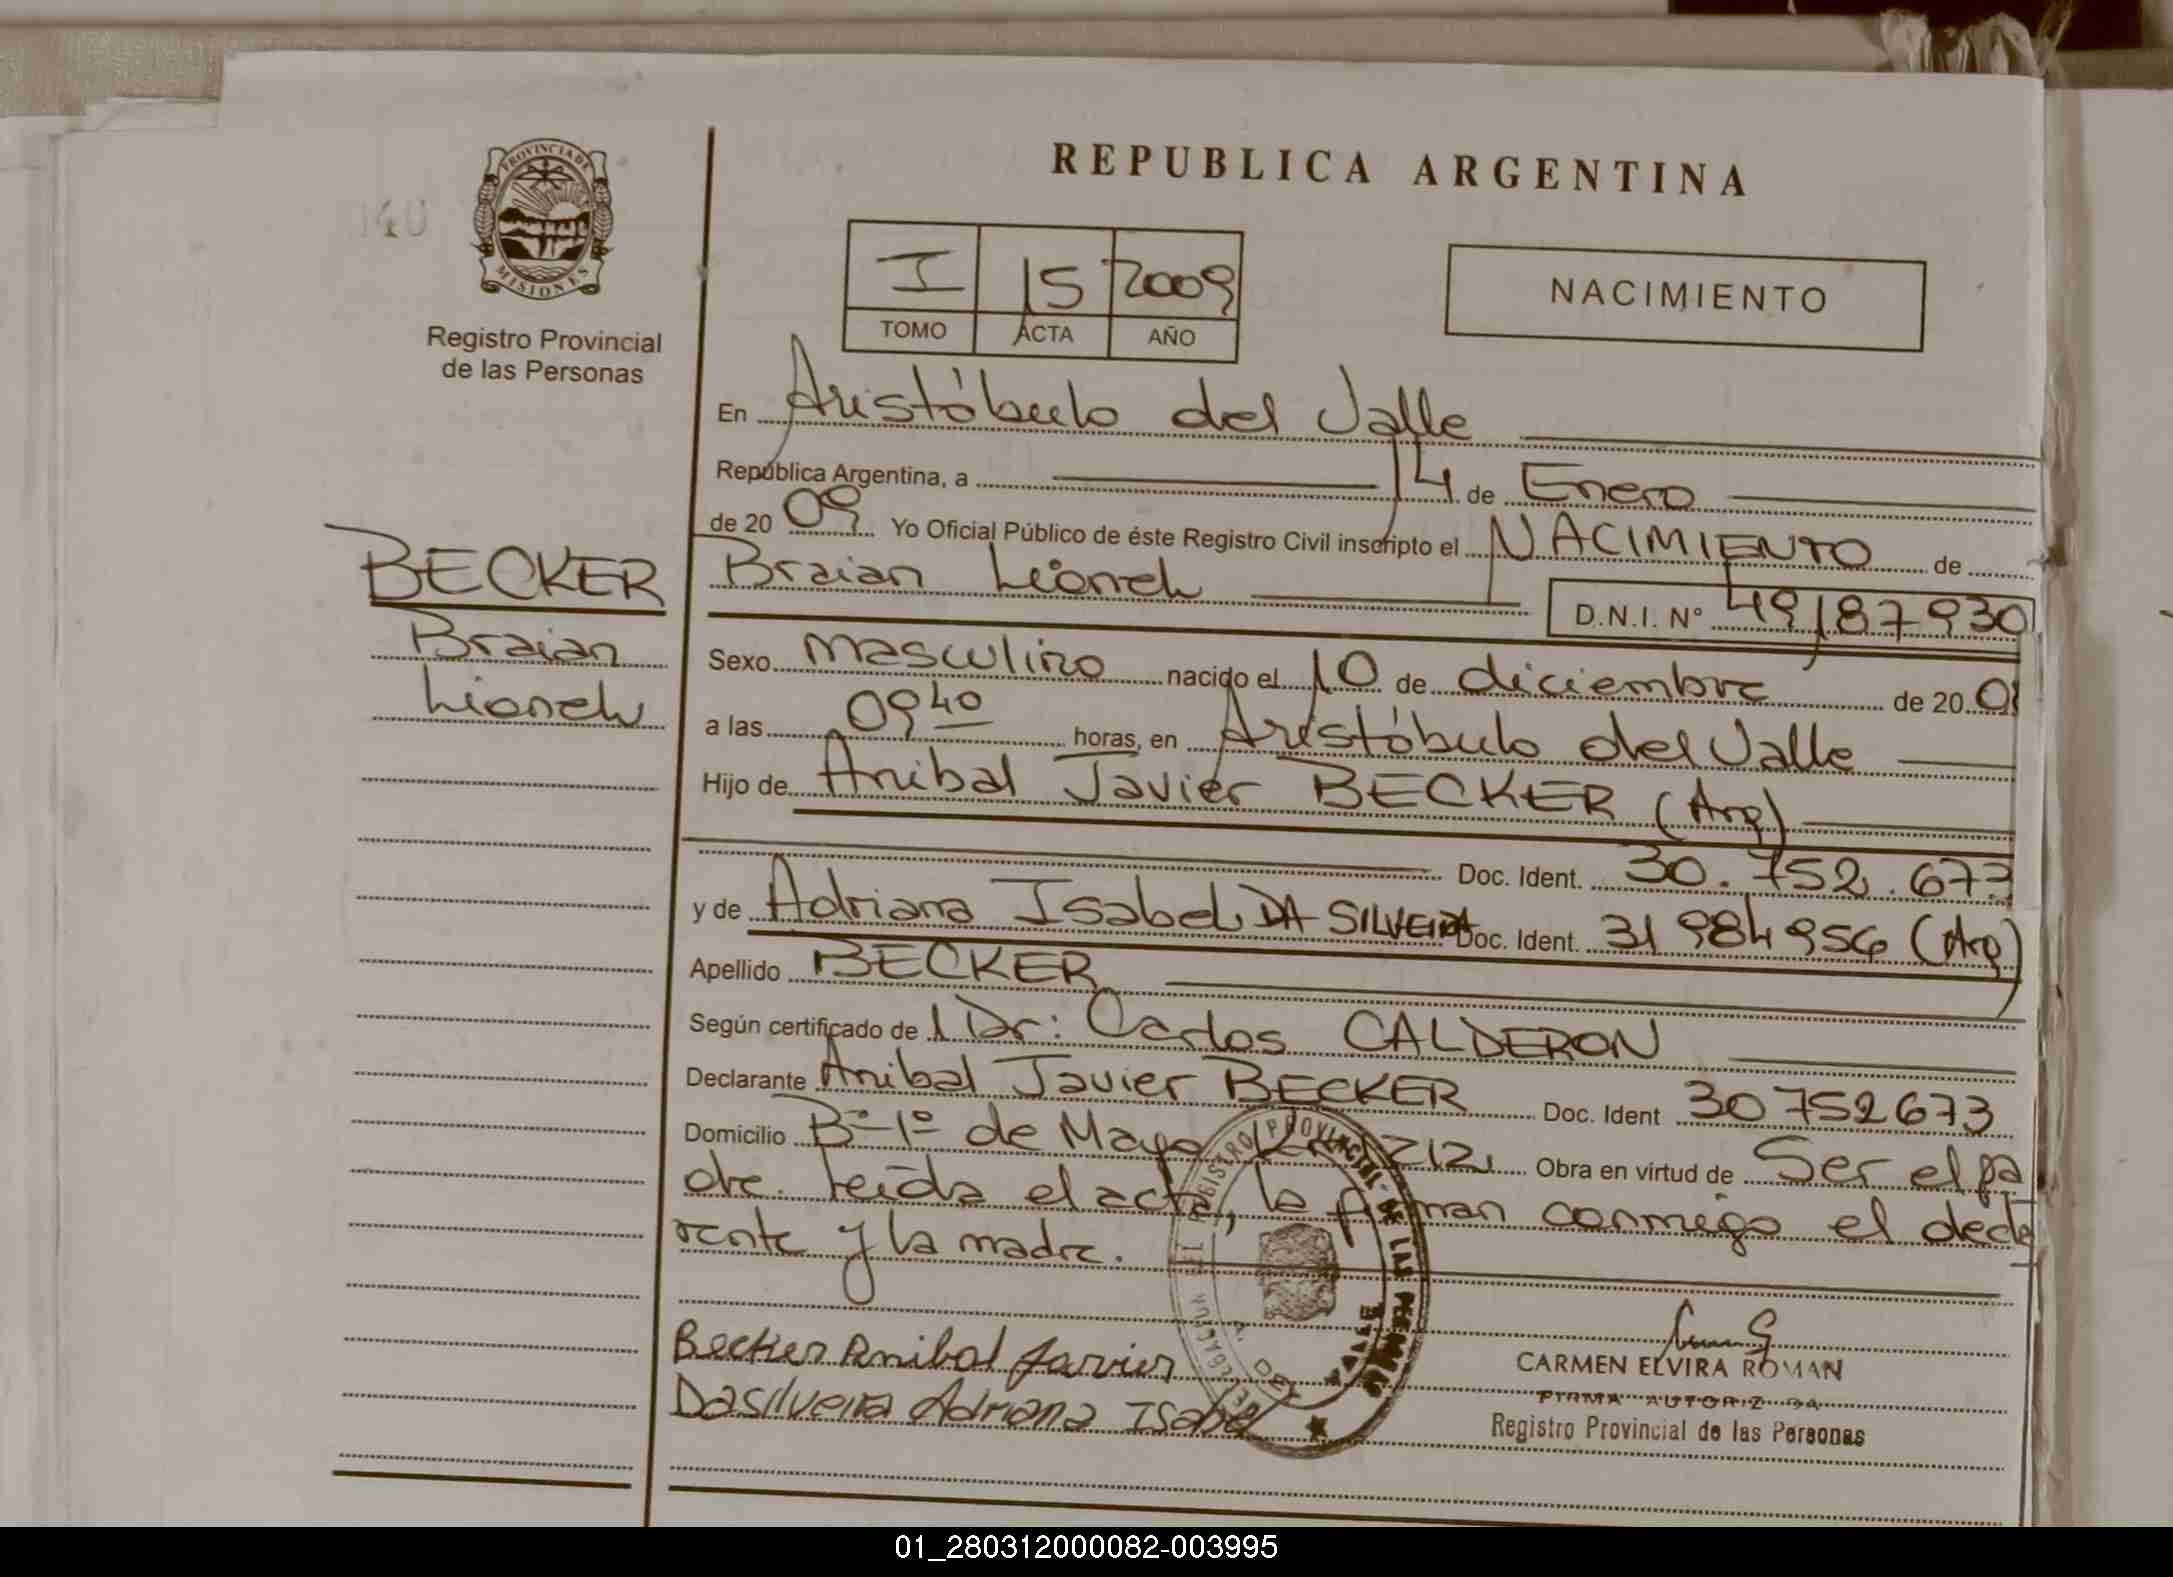 REPUBLICA ARGENTINA
140
PROVINCIA DE MISIONES
Registro Provincial
de las Personas
I 15 2009
TOMO ACTA AÑO
NACIMIENTO
En Aristóbulo del Valle
República Argentina, a 14 de Enero
de 2009 Yo Oficial Público de éste Registro Civil inscripto el NACIMIENTO de
BECKER
Braian
Lionel
Braian Lionel
D.N.I. Nº 49187930
Sexo masculino nacido el 10 de diciembre de 20 0
a las 09 40 horas, en Aristóbulo del Valle
Hijo de Anibal Javier BECKER (Arg)
Doc. Ident. 30.752.673
y de Adriana Isabel DA SILVEIRA Doc. Ident. 31984956 (Arg)
Apellido BECKER
Según certificado de l Dr: Carlos CALDERON
Declarante Anibal Javier BECKER Doc. Ident 30752673
Domicilio Bº 1º de Mayo 212 Obra en virtud de Ser el pa
dre. Leída el acta, la firman conmigo el decla
rante y la madre.
Becker Anibal Javier
Dasilveira Adriana Isabel
CARMEN ELVIRA ROMAN
FIRMA AUTORIZADA
Registro Provincial de las Personas
REGISTRO PROVINCIAL DE LAS PERSONAS
01_280312000082-003995